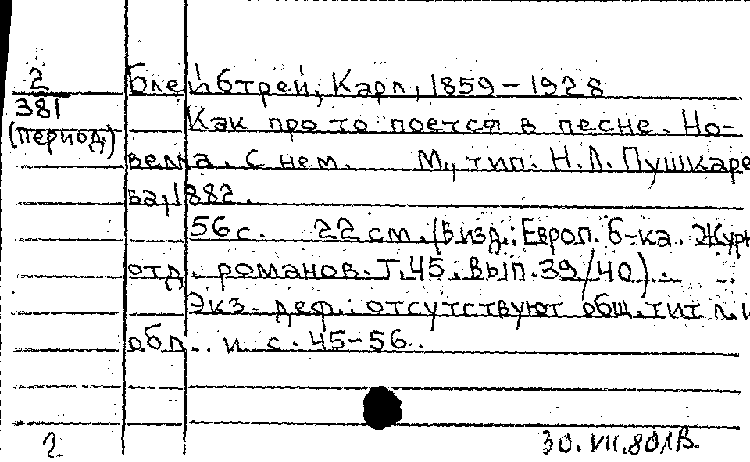 2
381
(период)
Блейбтрей, Карл, 1859-1928
Как про то поется в песне. Но-
велла. С нем. М., тип. Н.Л. Пушкаре
ва, 1882.
56 с. 22 см. (В изд.: Европ. б-ка. Журн
отд. романов. Т.45. Вып. 39/40).
Экз. деф.: отсутствуют общ. тит л. и
обл. и с. 45-56.
2
30.VII.80